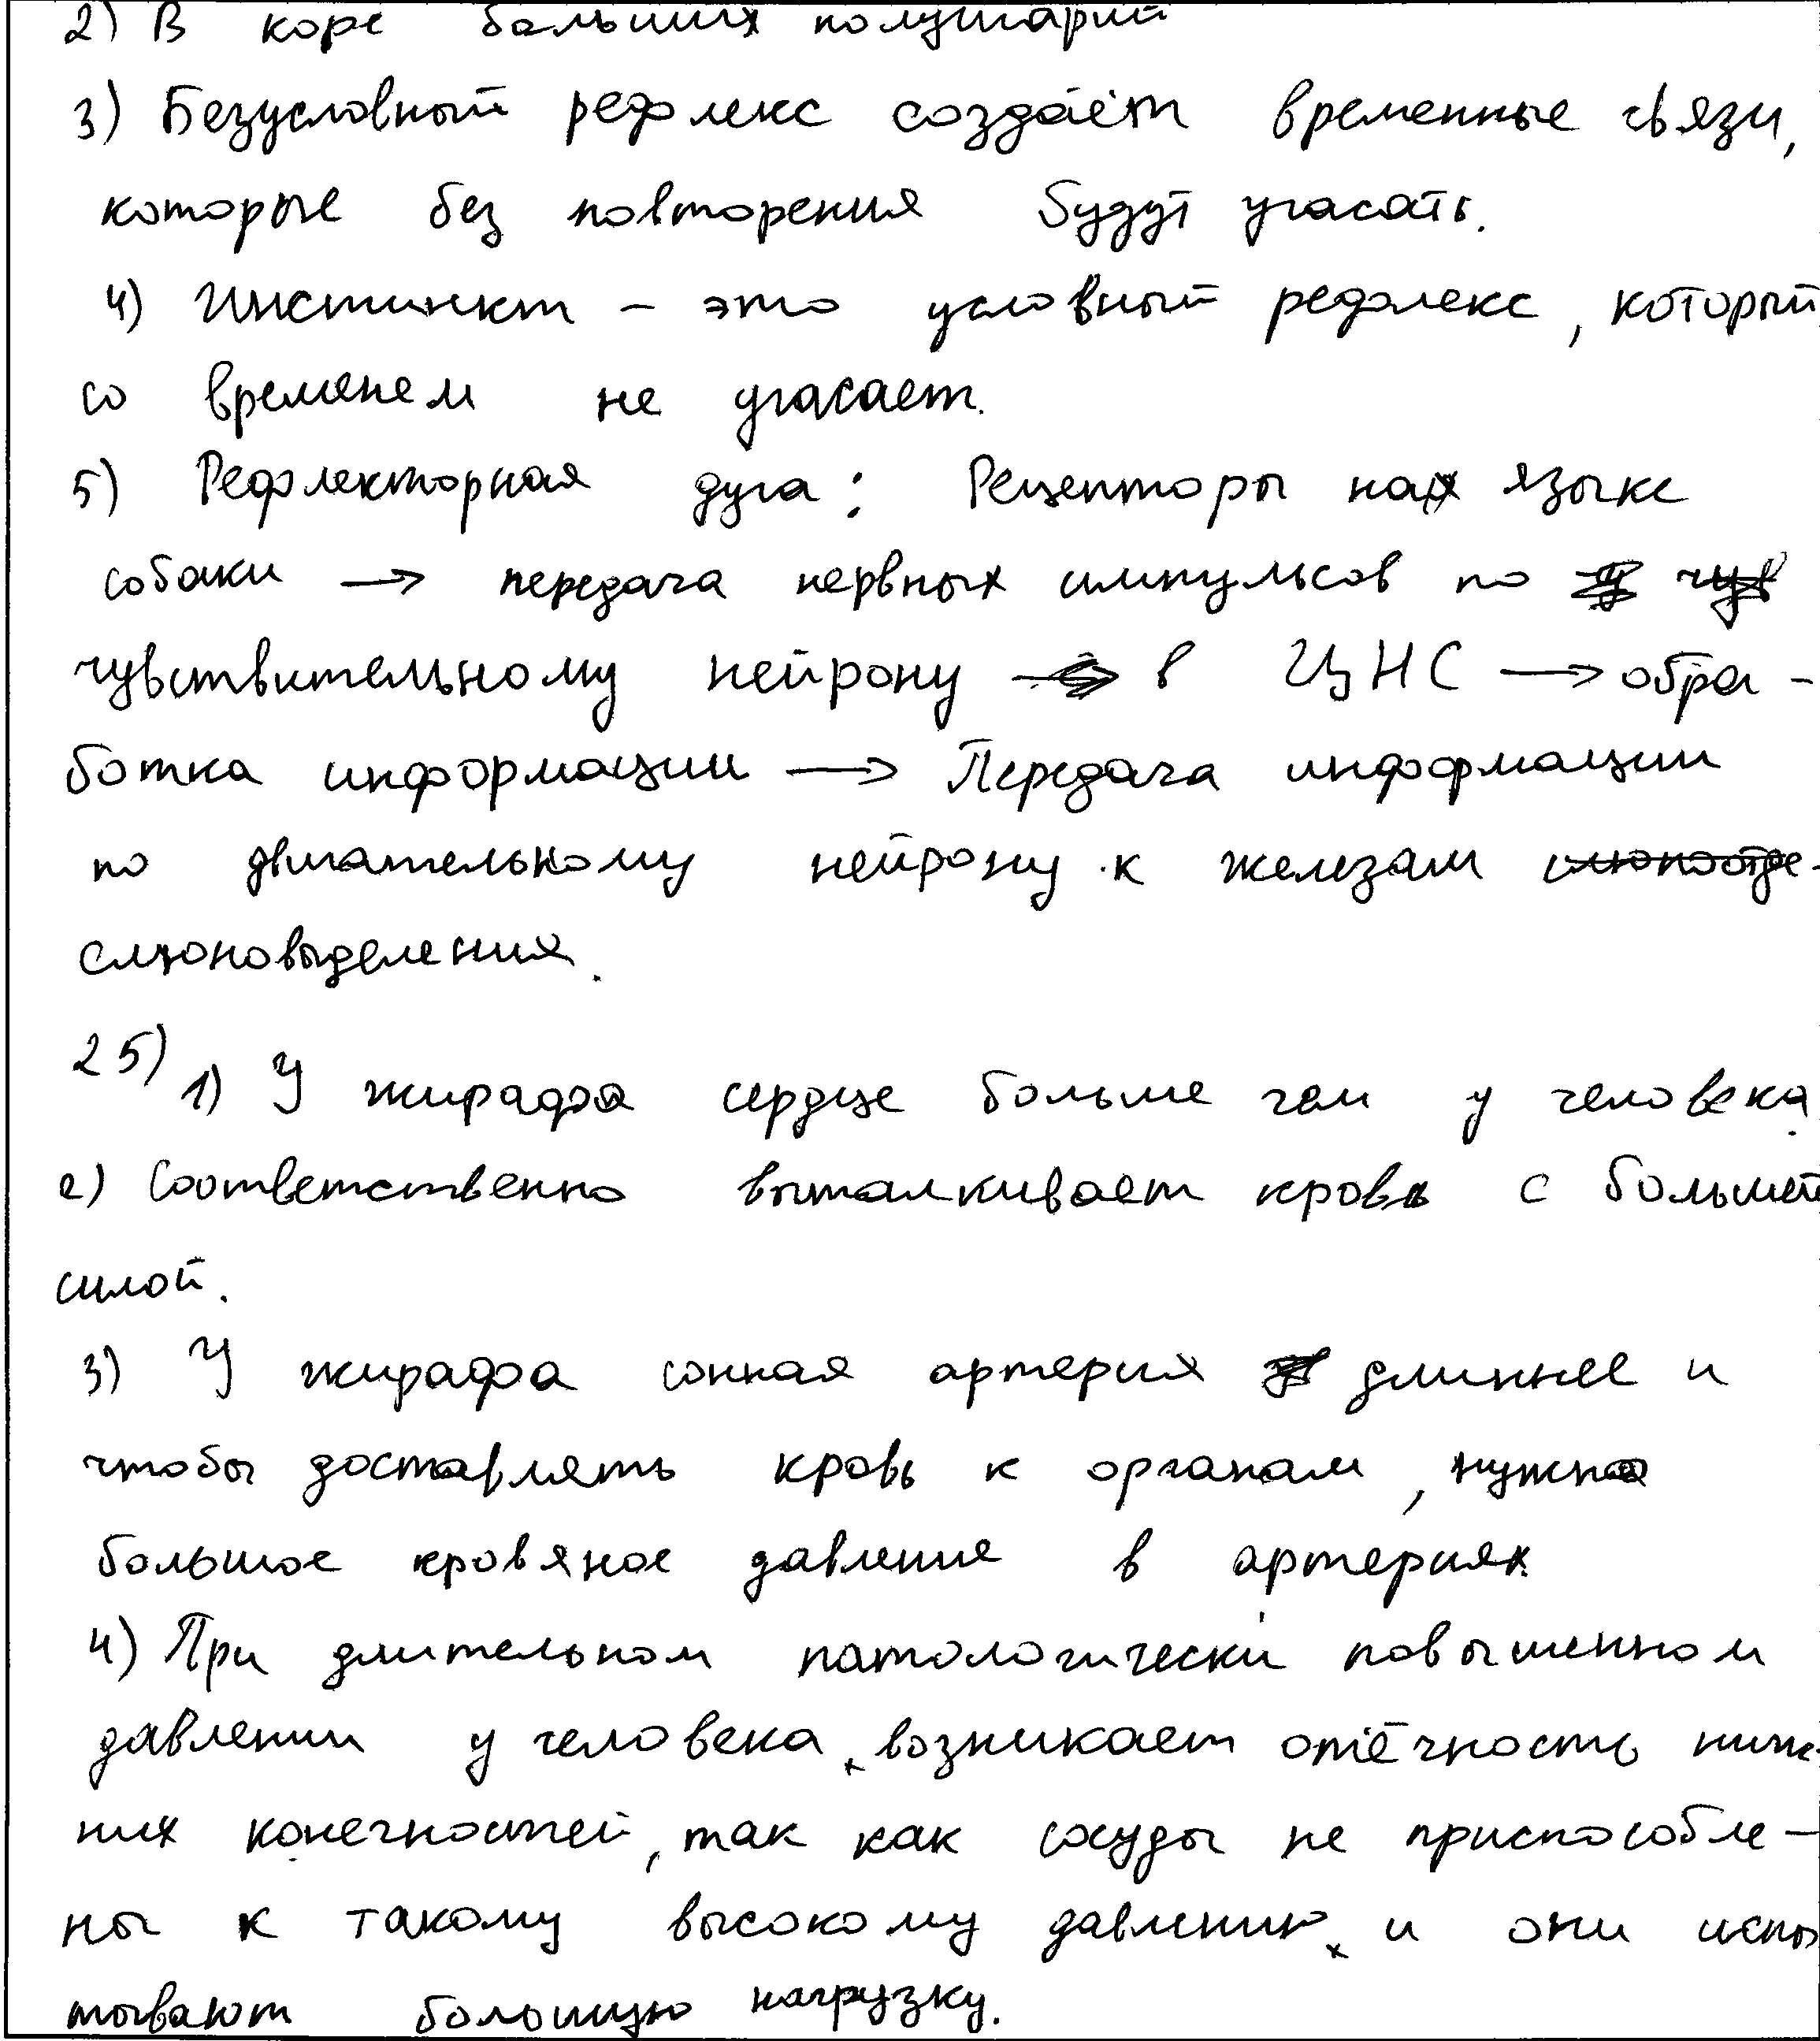 2) В коре больших полушарий
3) Безусловный рефлекс создаёт временные связи,
которые без повторения будут угасать.
4) Инстинкт – это условный рефлекс, который
со временем не угасает.
5) Рефлекторная дуга: Рецепторы на языке
собаки → передача нервных импульсов по
чувствительному нейрону в ЦНС → обра-
ботка информации → Передача информации
по двигательному нейрону к железам
слюновыделения.
25) 1) У жирафа сердце больше чем у человека.
2) Соответственно выталкивает кровь с большей
силой.
3) У жирафа сонная артерия длиннее и
чтобы доставлять кровь к органам, нужно
большое кровяное давление в артериях.
4) При длительном патологически повышенном
давлении у человека возникает отёчность ниж-
них конечностей, так как сосуды не приспособле-
ны к такому высокому давлению и они испы
тывают большую нагрузку.